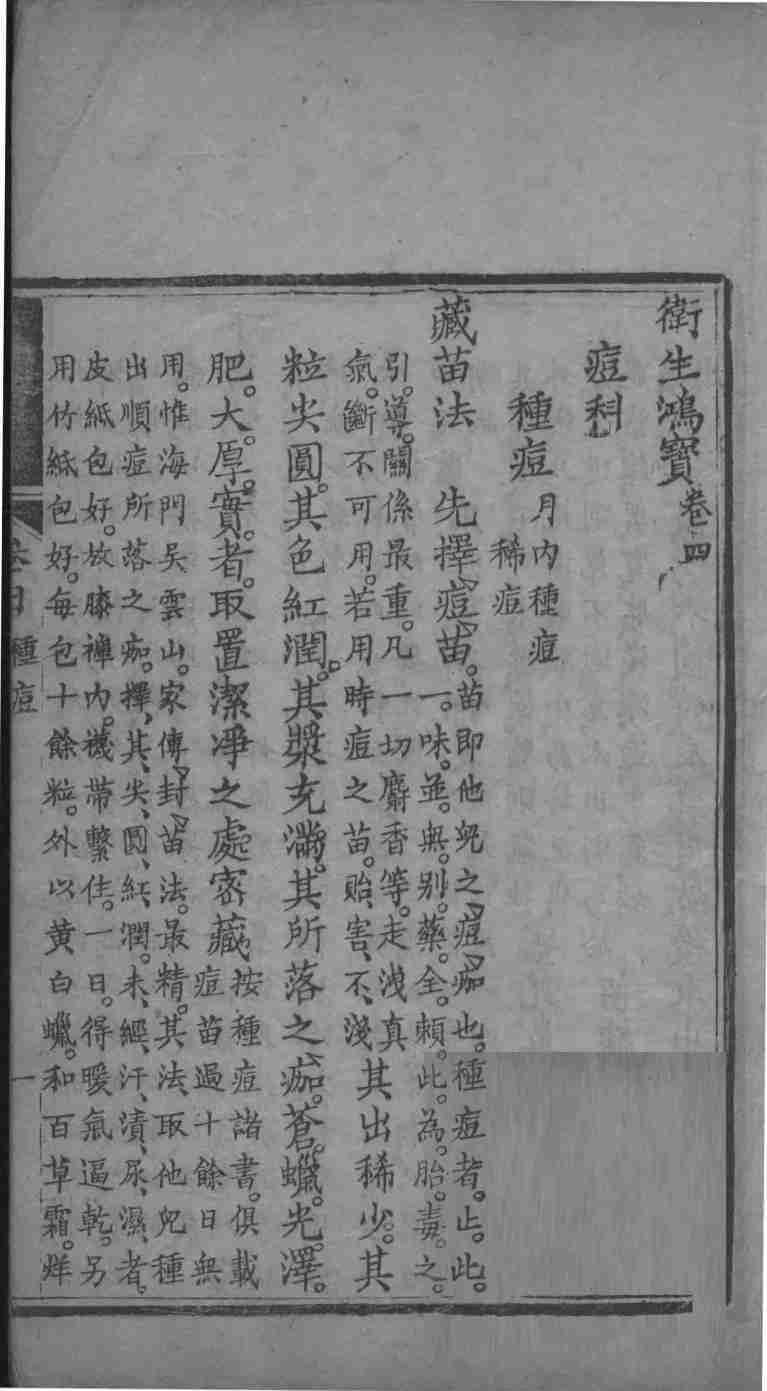 衛生鴻寶卷四
痘科
種痘 月內種痘
稀痘
藏苗法 先擇痘苗。苗即他兒之痘痂也。種痘者。止。此。
一。味。並。無。别。藥。全。頼。此。為。胎。毒。之。
引。導。關係最重。凡一切麝香等。走洩真
氣。斷不可用。若用時痘之苗。貽、害、不、淺
其出稀少。其
粒尖圓。其色紅潤。其漿充滿。其所落之痂。蒼。蠟。光。澤。
肥。大。厚。實。者。取置潔凈之處密藏
按種痘諸書。俱載
痘苗過十餘日無
用。惟海門吳雲山。家傳封苗法。最精。其法、取他兒種
出順痘所落之痂。擇、其、尖、圓、紅、潤。未、經、汗、漬、尿、濕、者。
皮紙包好。放膝褲內。襪帶繫住。一日。得暖氣逼乾。另
用竹紙包好。每包十餘粒。外以黄白蠟。和百草霜。烊
種痘
一